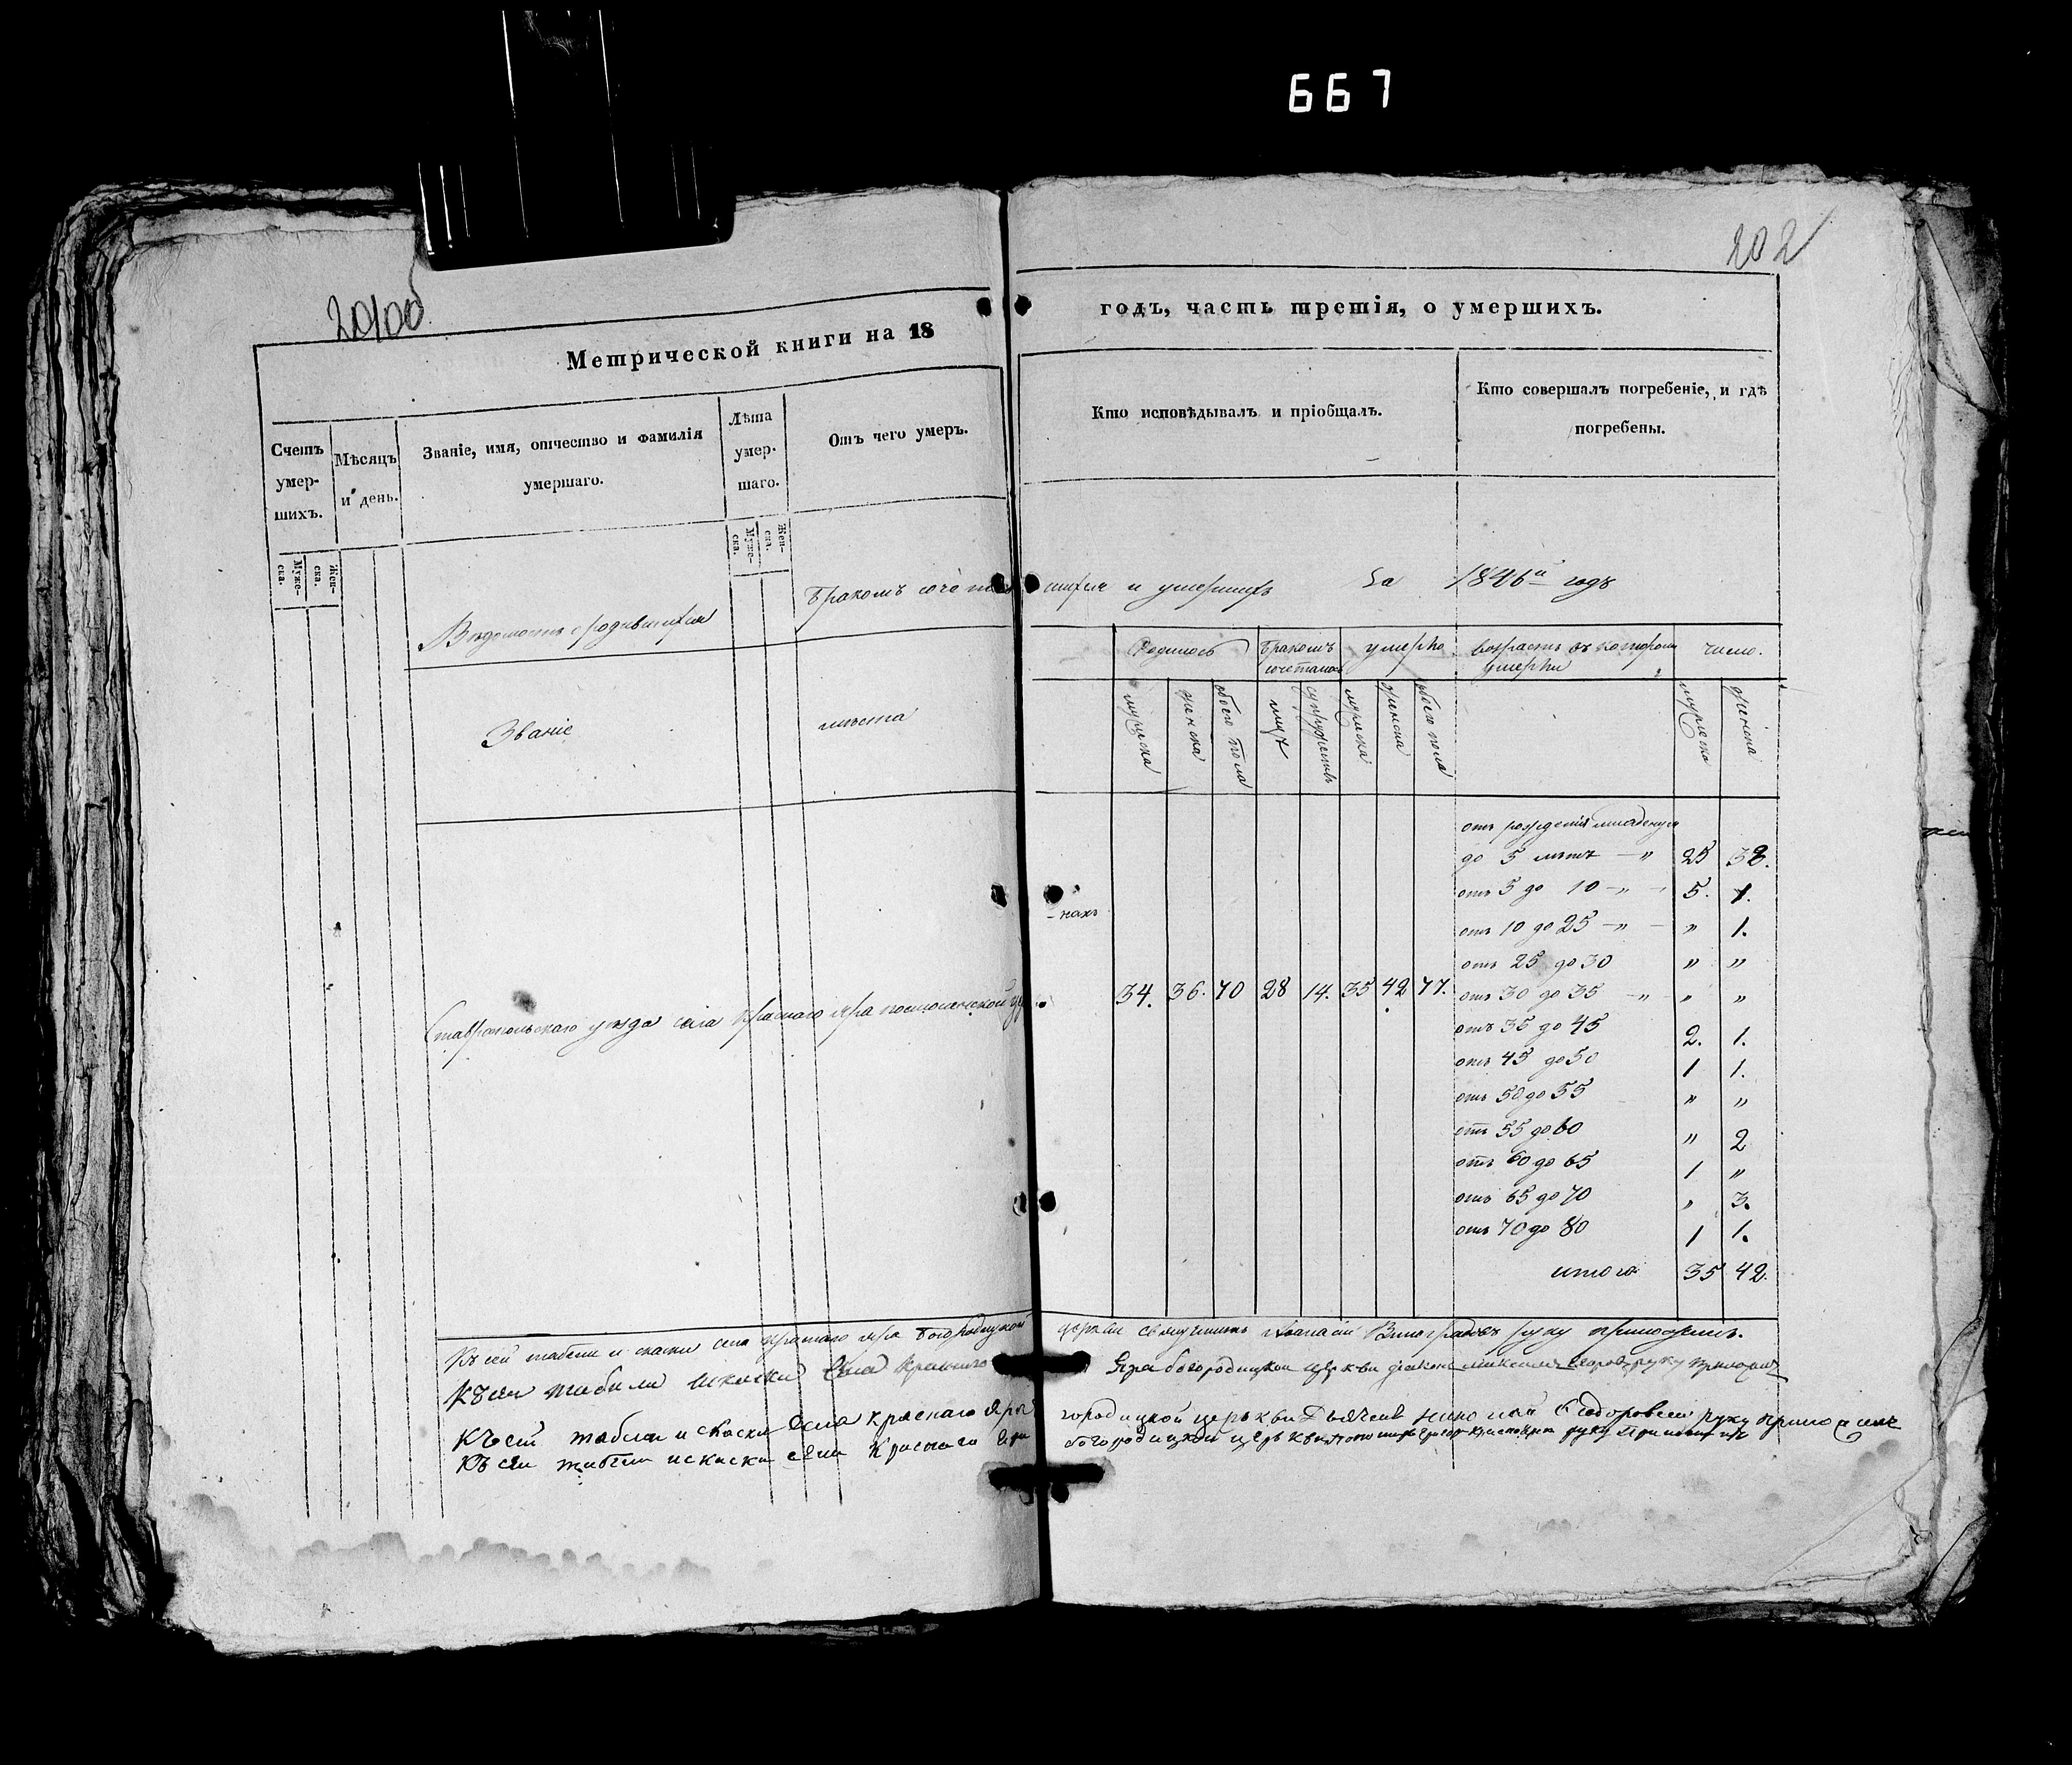 667
202
Метрической книги на 18 годъ, часть третія, о умершихъ.
Счетъ умер-шихъ.
Мѣсяцъ и день.
Званіе, имя, отчество и фамилія умершаго.
Лѣта умер-шаго.
Отъ чего умеръ.
Кто исповѣдывалъ и пріобщалъ.
Кто совершалъ погребеніе, и гдѣ погребены.
Муже-ска.
Жен-ска.
Муже-ска.
Жен-ска.
Ведомость о родившихся бракомъ сочетавшихся и умершихъ за 1846й годъ
Званіе
мѣста
Родилось
бракомъ сочеталось
умерло
возрастъ въ которомъ умерли
число.
мужеска
женска
обоего пола
муж
супружествъ
мужеска
женска
обоего пола
мужеска
женска
отъ рожденія младенцы
до 5 лѣтъ — " 25 32.
отъ 5 до 10 — " 5. 1.
отъ 10 до 25 — " — " 1.
отъ 25 до 30 " "
Ставропольскаго уезда села Краснаго Яра
34. 36. 70 28 14. 35 42 77.
отъ 30 до 35 — " " "
отъ 35 до 45 2. 1.
отъ 45 до 50 1 1.
отъ 50 до 55 " "
отъ 55 до 60 " 2
отъ 60 до 65 1 "
отъ 65 до 70 " 3.
отъ 70 до 80 1 1.
итого 35 42.
Къ сей табели и сказки села Краснаго Яра Богородицкой церкви священникъ Афанасий Виноградовъ руку приложилъ.
Къ сей табели и сказки села Краснаго Яра богородицкой церкви диаконъ руку приложил
Къ сей табели и сказки села Краснаго Яра городицкой церькви Дьячекъ Федоровъ руку приложилъ
Къ сей табели и сказки села Краснаго Яра богородицкой церькви пономарь руку приложилъ